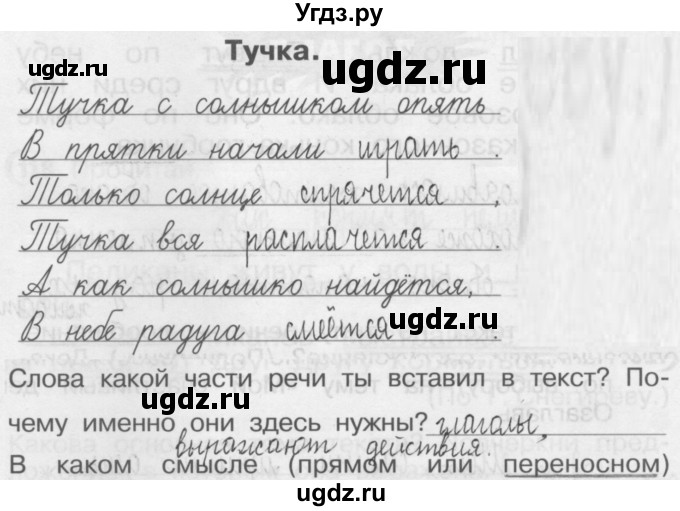 Угдз.ру
Тучка.
ugdz.ru
ugdz.ru
Тучка с солнышком опять
В прятки начали играть.
Только солнце спрячется,
ugdz.ru
Тучка вся расплачется.
А как солнышко найдётся,
ugdz.ru
В небе радуга смеётся.
Слова какой части речи ты вставил в текст? По-
ugdz.ru
чему именно они здесь нужны? глаголы,
выражают действия.
В каком смысле (прямом или переносном)
ugdz.ru
ugdz.ru